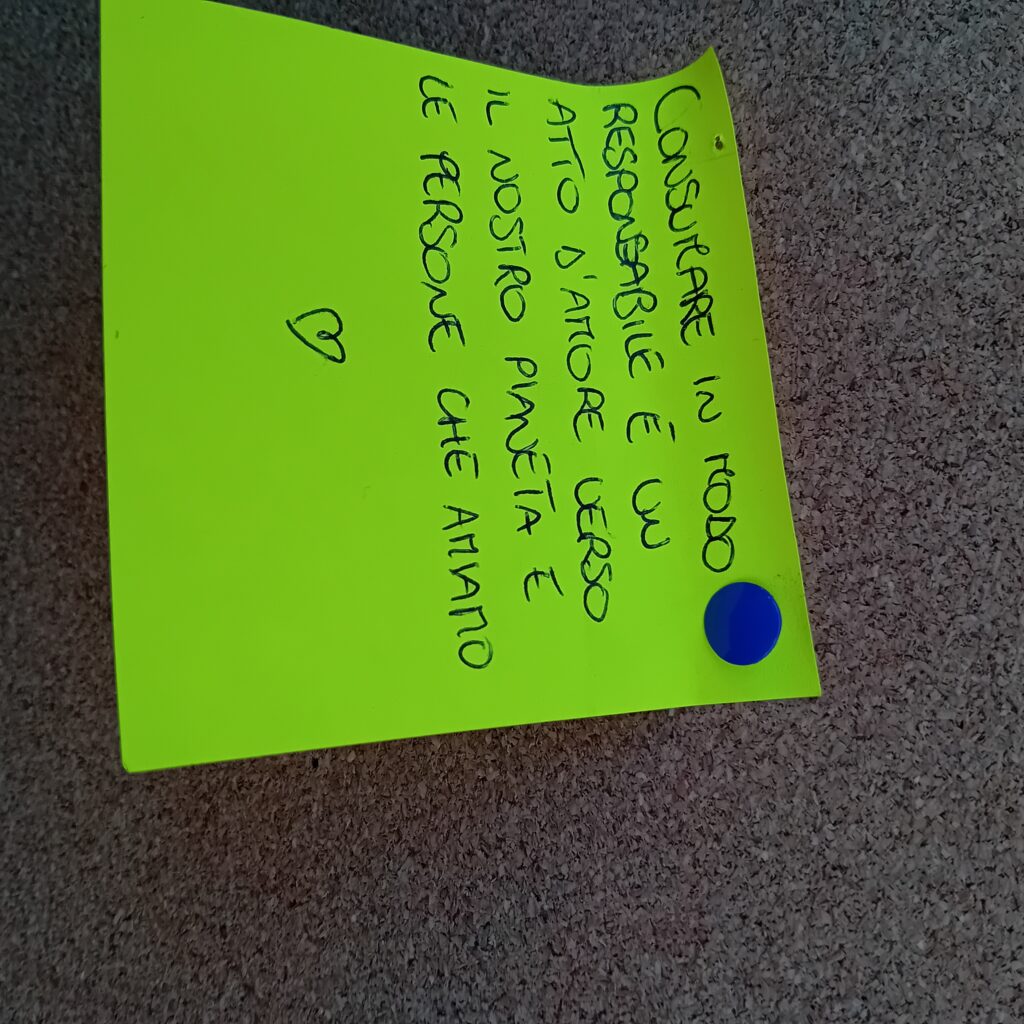 CONSUMARE IN MODO
RESPONSABILE É UN
ATTO D'AMORE VERSO
IL NOSTRO PIANETA E
LE PERSONE CHE AMIAMO